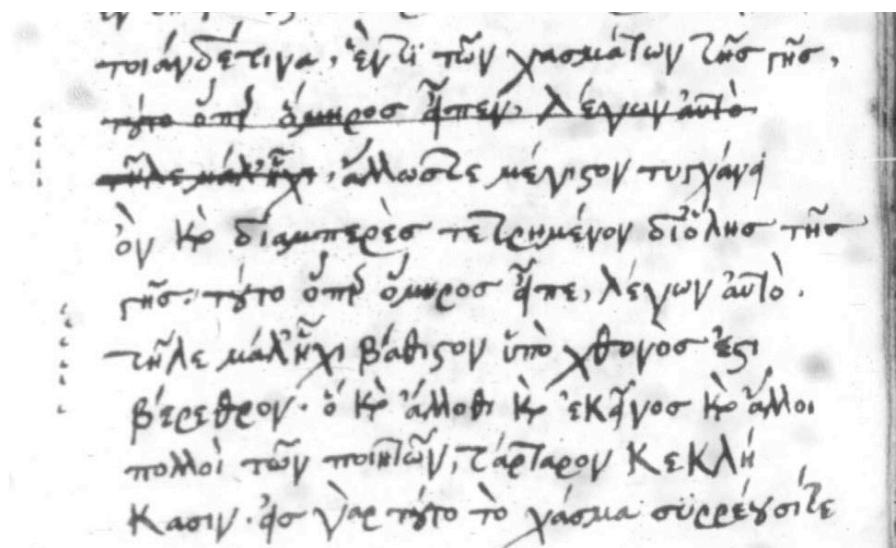 τοιάνδέ τινα, ἕν τι τῶν χασμάτων τῆς γῆς,
τοῦτο ὅπερ ὅμηρος εἶπεν, λέγων αὐτὸ
τῆλε μάλ' ἧχι, ἄλλως τε μέγιστον τυγχάνει
ὂν καὶ διαμπερὲς τετρημένον δι' ὅλης τῆς
γῆς. τοῦτο ὅπερ ὅμηρος εἶπε, λέγων αὐτὸ.
τῆλε μάλ' ἧχι βάθιστον ὑπὸ χθονὸς ἐστι
βέρεθρον. ὃ καὶ ἄλλοθι καὶ ἐκεῖνος καὶ ἄλλοι
πολλοὶ τῶν ποιητῶν, τάρταρον κεκλή
κασιν. εἰς γὰρ τοῦτο τὸ χάσμα συρρέουσί τε